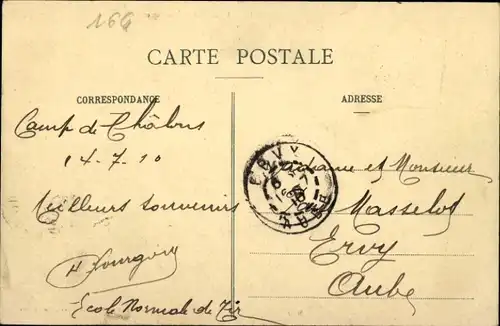 166
CARTE POSTALE
CORRESPONDANCE
Camp de Châlons
14-7-10
Meilleurs souvenirs
Ecole Normale de Tir
ADRESSE
Madame et Monsieur
Masselot
Ervy
Aube
ERVY
AUBE